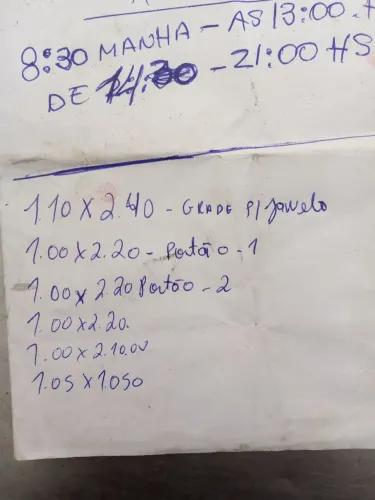 8:30 MANHA - AS 13:00.H
DE 14:30 - 21:00 HS
1.10 X 2.40 - GRADE P/ Janela
1.00 X 2.20 - Portão - 1
1.00 X 2.20 Portão - 2
1.00 X 2.20.
1.00 X 2.10.00
1.05 X 1.050